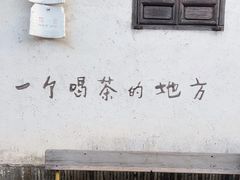 一个喝茶的地方